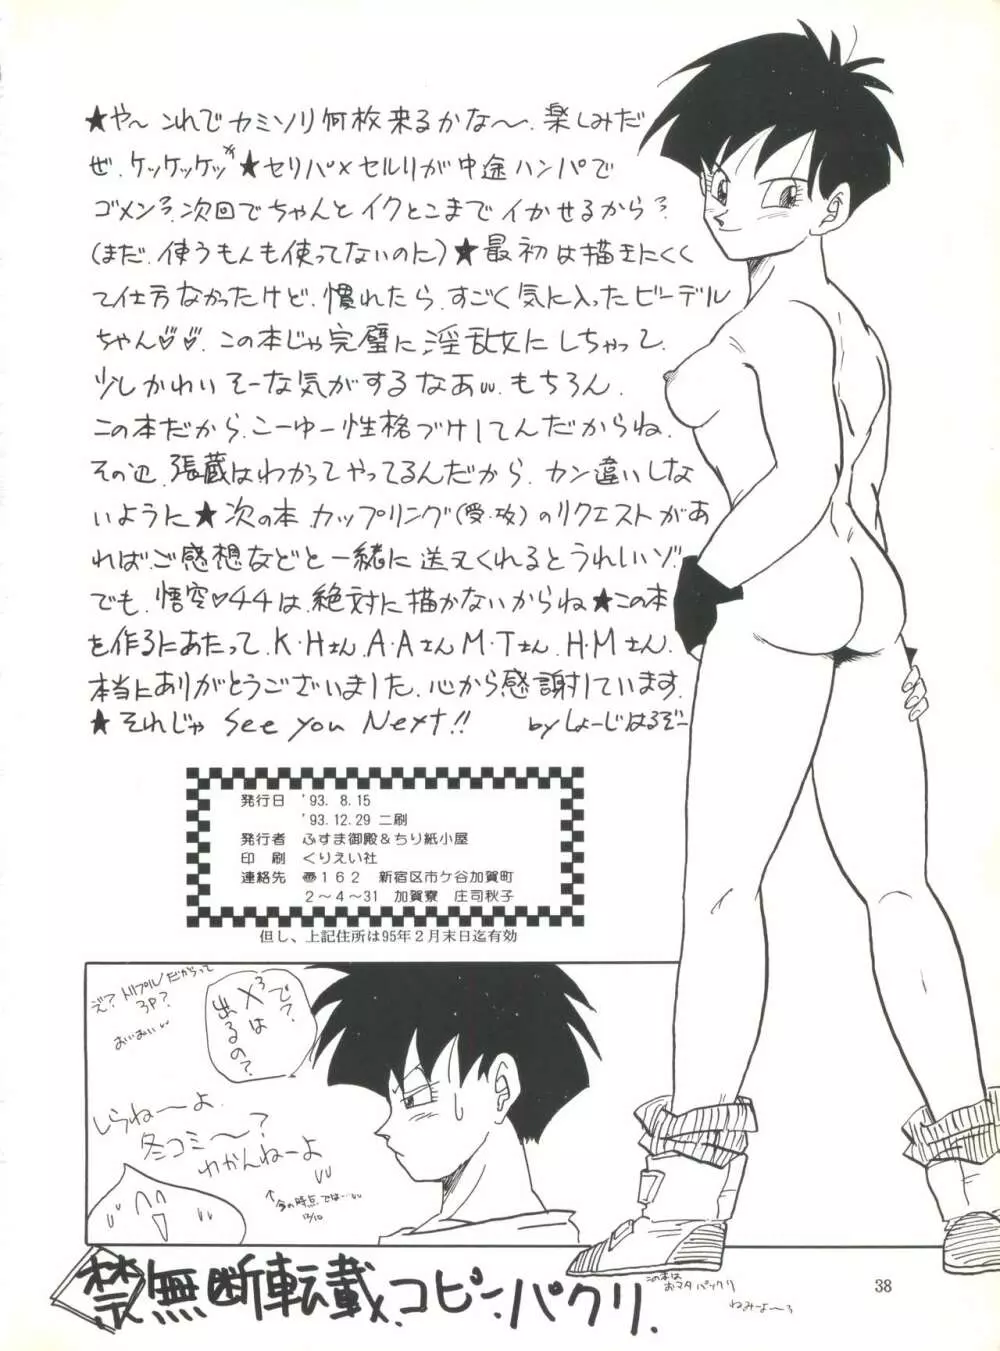 ★や〜 これで カミソリ何枚来るかな〜. 楽しみだ
ぜ. ケッケッケッ ★セリパ×セルリが中途ハンパで
ゴメン? 次回でちゃんとイクとこまでイかせるから?
(まだ. 使うもんも使ってないのに) ★最初は描きにくく
て仕方なかったけど. 慣れたら. すごく気に入ったビーデル
ちゃん♡♡. この本じゃ完璧に淫乱女にしちゃって.
少しかわいそーな気がするなあw. もちろん.
この本だから. こーゆー性格づけしてんだからね.
その辺. 張蔵はわかってやってるんだから. カン違いしな
いように ★次の本. カップリング(受・攻)のリクエストがあ
れば. ご感想などと一緒に送ってくれるとうれしいゾ.
でも. 悟空♡44は. 絶対に描かないからね ★この本
を作るにあたって. K・Hさん. A・Aさん M・Tさん. H・Mさん.
本当にありがとうございました. 心から感謝しています.
★それじゃ See you Next!! byしょーじはるぞー
発行日 '93. 8.15
'93.12.29 二刷
発行者 ふすま御殿&ちり紙小屋
印 刷 くりえい社
連絡先 〠162 新宿区市ケ谷加賀町
2〜4〜31 加賀寮 庄司秋子
但し、上記住所は95年2月末日迄有効
で?
X³は
出るの?
え? トリプルだからって
3P?
おいおいw
しらねーよ.
冬コミ〜?
わかんねーよ
↑今の時点では…
12/10
禁無断転載. コピー. パクリ.
この本は
おマタパックリ
ねみよ〜
38